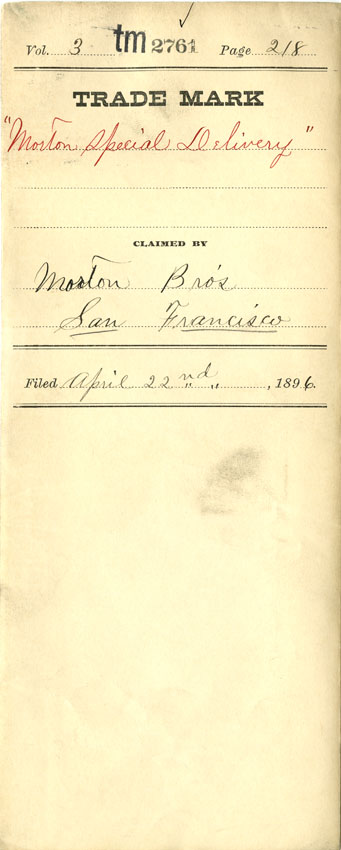 Vol. 3 tm 2761 Page 218
TRADE MARK
"Morton Special Delivery"
CLAIMED BY
Morton Bro's
San Francisco
Filed April 22nd, 1896.